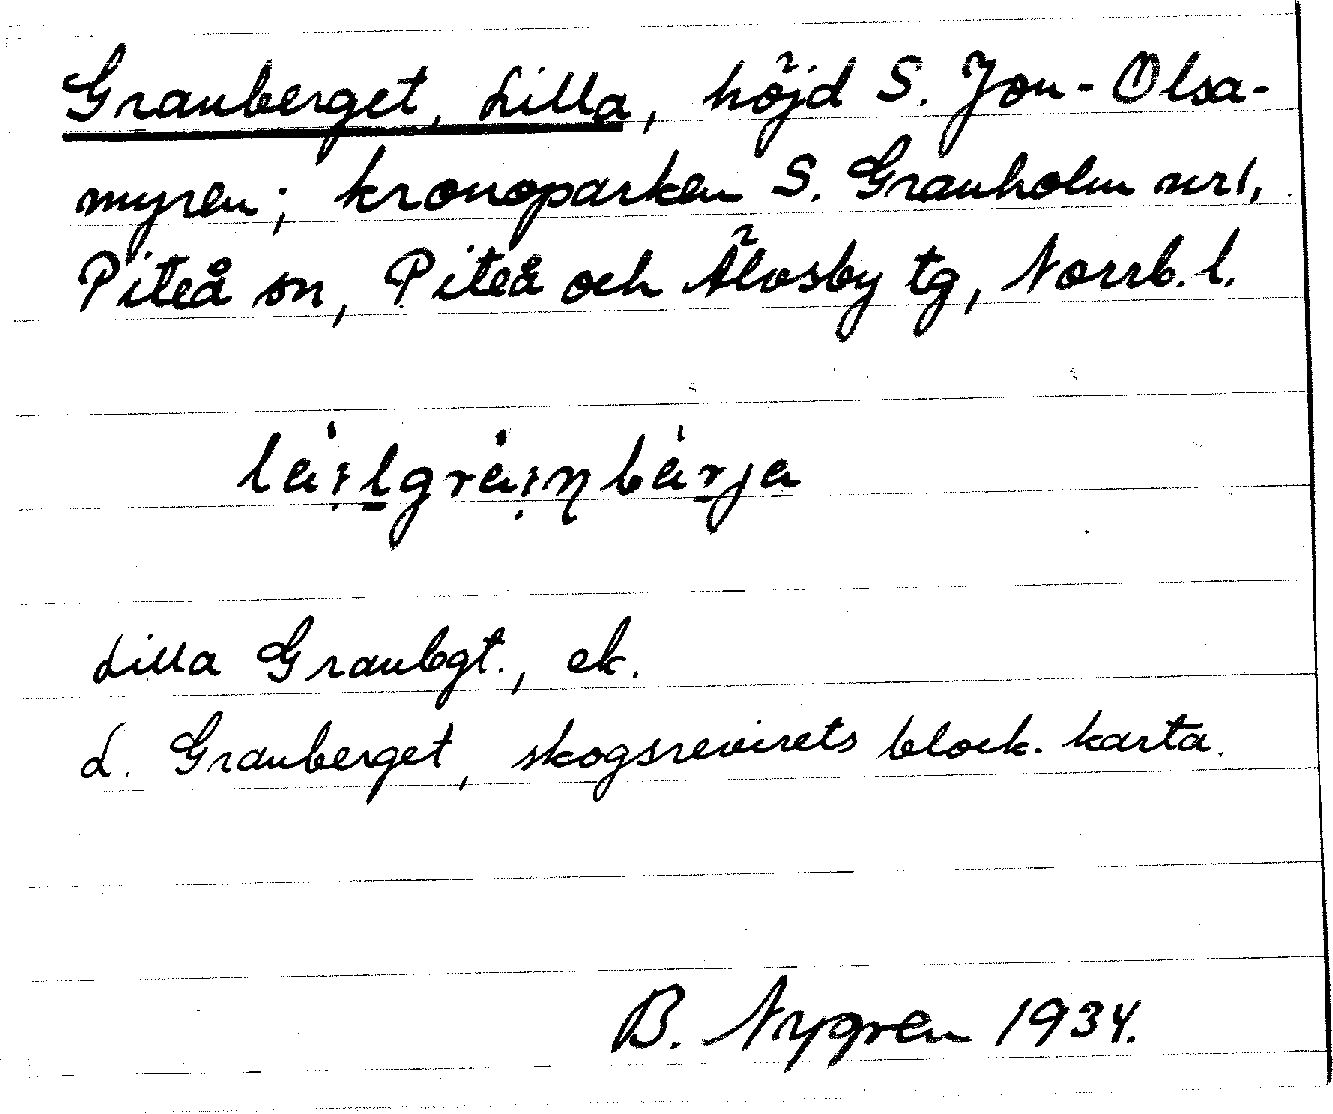 Granberget, Lilla, höjd S. Jon-Olsa-
myren; kronoparken S. Granholm nr 1,
Piteå sn, Piteå och Älvsby tg, Norrb. l.
Lilla Granbgt., ek.
L. Granberget, skogsrevirets block-karta.
B. Nygren 1934.